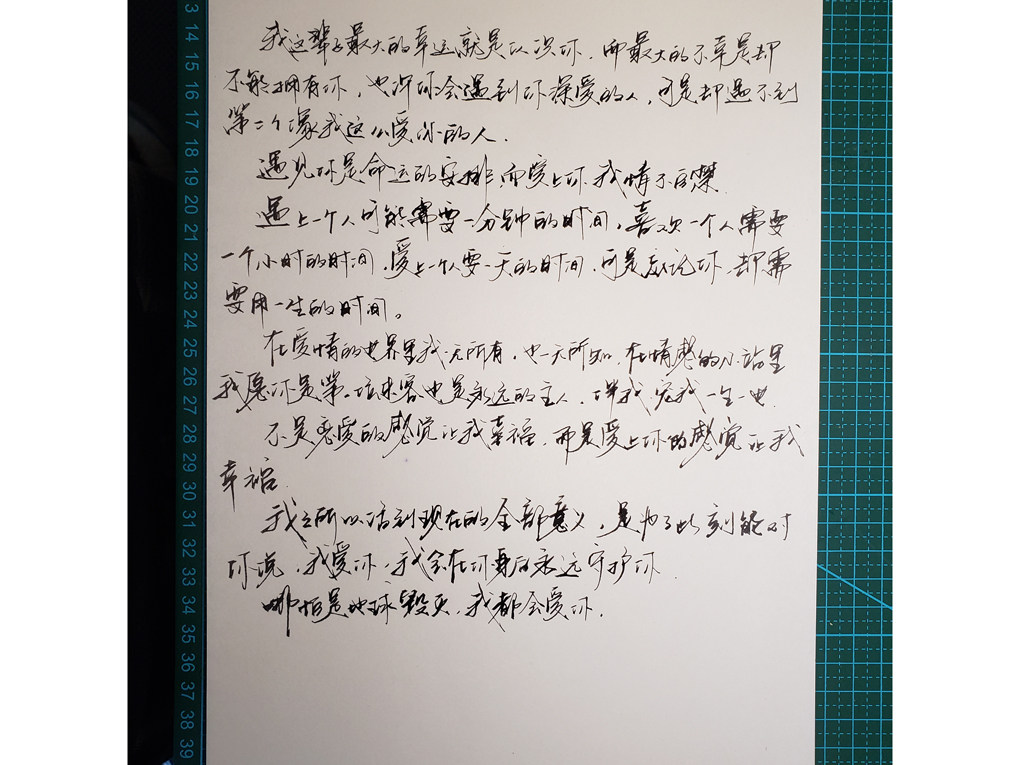 3
14
15
16
17
18
19
20
21
22
23
24
25
26
27
28
29
30
31
32
33
34
35
36
37
38
39
我这辈子最大的幸运就是认识你，而最大的不幸是却
不能拥有你，也许你会遇到你深爱的人，可是却遇不到
第二个像我这么爱你的人.
遇见你是命运的安排，而爱上你我情不自禁.
遇上一个人可能需要一分钟的时间，喜欢一个人需要
一个小时的时间，爱上一个人要一天的时间，可是忘记你，却需
要用一生的时间。
在爱情的世界里我一无所有，也一无所知，在情感的小站里
我愿你是第一位来客也是永远的主人，伴我宠我一生一世
不是恋爱的感觉让我幸福，而是爱上你的感觉让我
幸福.
我之所以活到现在的全部意义，是为了此刻能对
你说，我爱你，我会在你身后永远守护你.
哪怕是地球毁灭，我都会爱你.